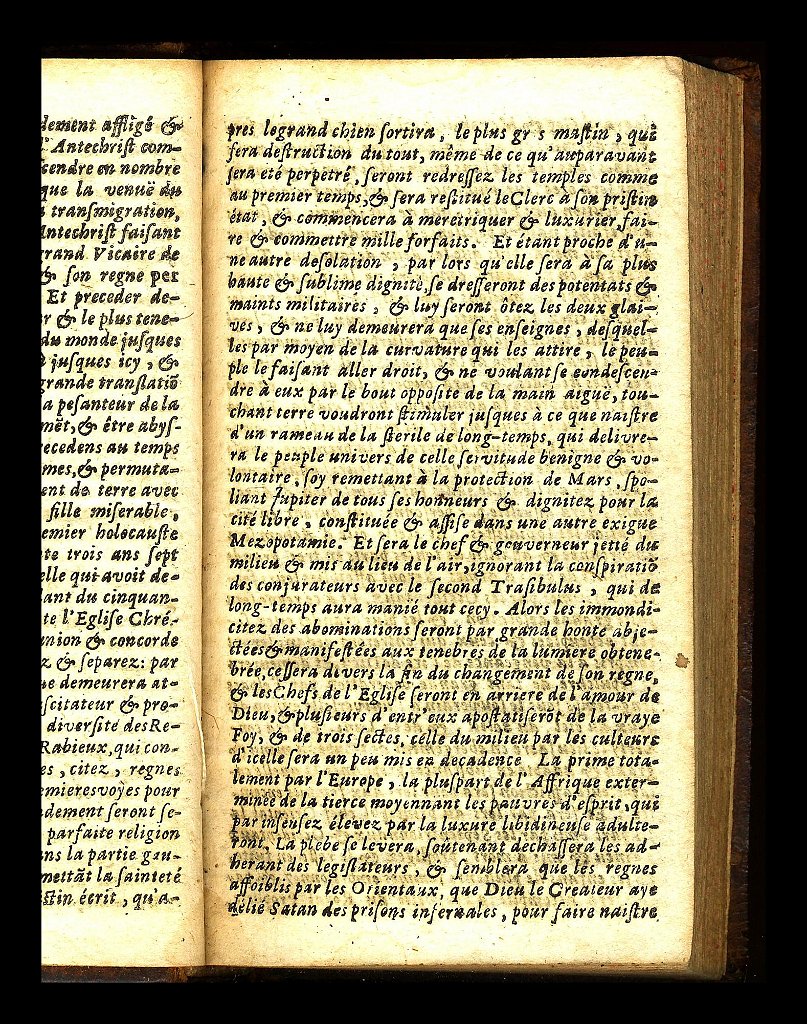 dement affligé &
l'Antechrist com-
cendre en nombre
que la venuë du
transmigration,
Antechrist faisant
rand Vicaire de
& son regne per
Et preceder de-
r & le plus tene-
du monde jusques
jusques icy, &
grande translatiõ
a pesanteur de la
mẽt, & étre abys-
recedens au temps
mes, & permuta-
ent de terre avec
fille miserable,
emier holocauste
te trois ans sept
elle qui avoit de-
ant du cinquan-
te l'Eglise Chré-
nion & concorde
z & separez: par
ne demeurera at-
scitateur & pro-
diversité des Re-
Rabieux, qui con-
es, citez, regnes
emieres voyes pour
dement seront se-
parfaite religion
ns la partie gau-
mettãt la sainteté
stin écrit, qu'a-
pres le grand chien sortira, le plus gr s mastin, qui
sera destruction du tout, même de ce qu'auparavant
sera eté perpetré, seront redressez les temples comme
au premier temps, & sera restitué le Clerc à son pristin
état, & commencera à meretriquer & luxurier, fai-
re & commettre mille forfaits. Et étant proche d'u-
ne autre desolation, par lors qu'elle sera à sa plus
haute & sublime dignité, se dresseront des potentats &
maints militaires, & luy seront ôtez les deux glai-
ves, & ne luy demeurera que ses enseignes, desquel-
les par moyen de la curvature qui les attire, le peu-
ple le faisant aller droit, & ne voulant se condescen-
dre à eux par le bout opposite de la main aiguë, tou-
chant terre voudront stimuler jusques à ce que naistre
d'un rameau de la sterile de long-temps, qui delivre-
ra le peuple univers de celle servitude benigne & vo-
lontaire, soy remettant à la protection de Mars, spo-
liant Jupiter de tous ses honneurs & dignitez pour la
cité libre, constituée & assise dans une autre exigue
Mezopotamie. Et sera le chef & gouverneur jetté du
milieu & mis au lieu de l'air, ignorant la conspiratiõ
des conjurateurs avec le second Trasibulus, qui de
long-temps aura manié tout cecy. Alors les immondi-
citez des abominations seront par grande honte abje-
ctées & manifestées aux tenebres de la lumiere obtene-
brée, cessera divers la fin du changement de son regne,
& les Chefs de l'Eglise seront en arriere de l'amour de
Dieu, & plusieurs d'entr'eux apostatiserõt de la vraye
Foy, & de trois sectes, celle du milieu par les culteurs
d'icelle sera un peu mis en decadence La prime tota-
lement par l'Europe, la pluspart de l'Affrique exter-
minée de la tierce moyennant les pauvres d'esprit, qui
par insensez élevez par la luxure libidineuse adulte-
ront. La plebe se levera, soutenant dechassera les ad-
herant des legislateurs, & semblera que les regnes
affoiblis par les Orientaux, que Dieu le Createur aye
délié Satan des prisons infernales, pour faire naistre